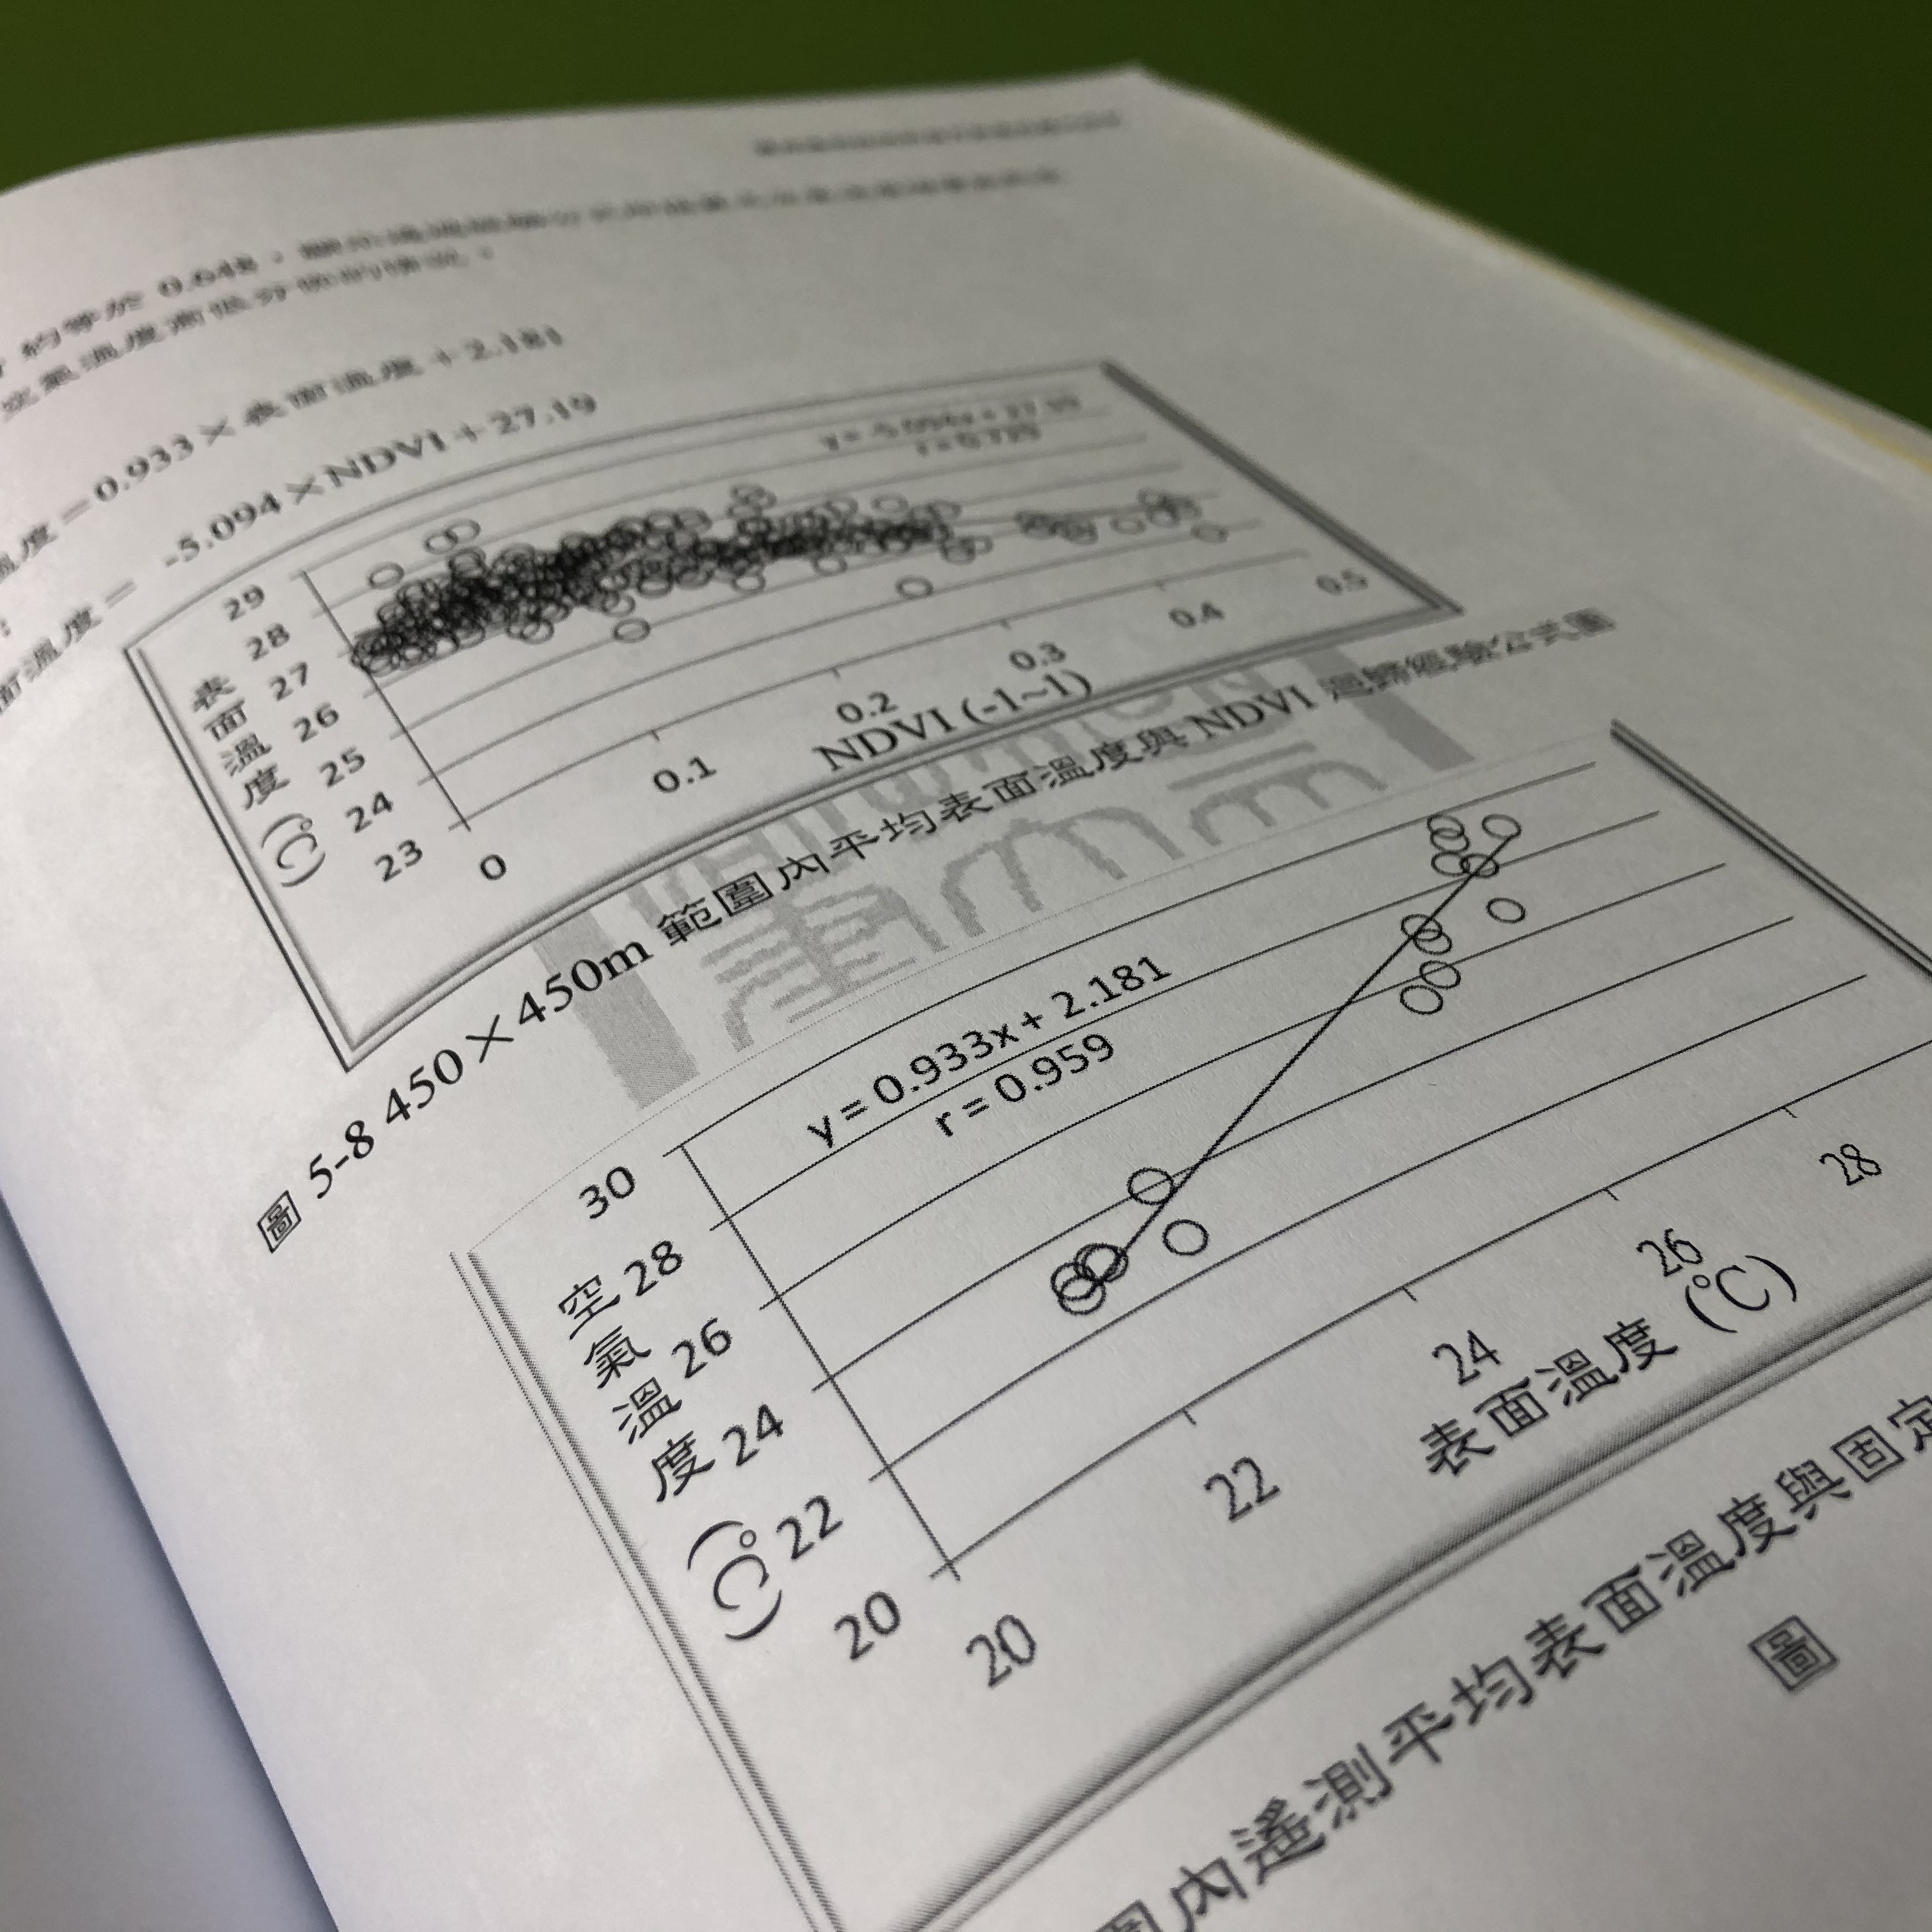 約等於 0.648，
空氣溫度高低分佈的情況。
溫度=0.933×表面溫度+2.181
面溫度= -5.094×NDVI+27.19
y = -5.094x + 27.19
r = 0.735
29
28
27
26
25
24
23
表面溫度(℃)
0
0.1
0.2
0.3
0.4
0.5
NDVI (-1~1)
圖 5-8 450×450m 範圍內平均表面溫度與 NDVI 迴歸經驗公式圖
y = 0.933x + 2.181
r = 0.959
30
28
26
24
22
20
空氣溫度(℃)
20
22
24
26
28
表面溫度(℃)
圍內遙測平均表面溫度與固定
圖